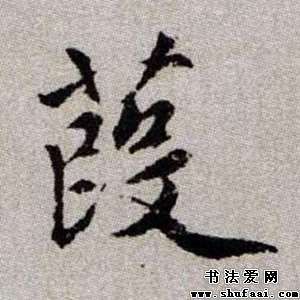 葭
书法爱网
www.shufaai.com